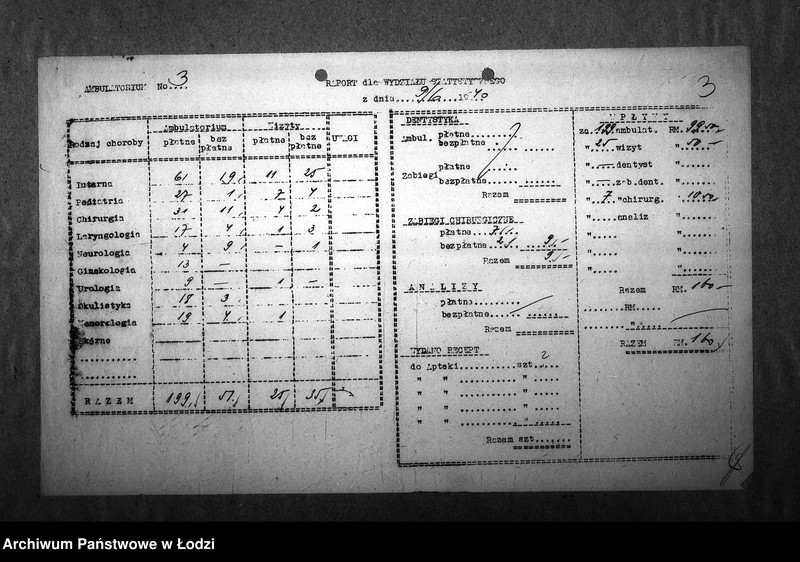 AMBULATORIUM No. 3
RAPORT dla WYDZIAŁU STATYSTYCZNEGO
z dnia 9/6 1940
3
Rodzaj choroby Ambulatorium Wizyty UWAGI
płatne bez płatne płatne bez płatne
Interna 61 19 11 25
Pediatria 27 1 7 4
Chirurgia 31 11 4 2
Laryngologia 17 4 1 3
Neurologia 4 9 — 1
Ginekologia 13 —
Urologia 9 — 1 —
Okulistyka 18 3
Wenerologia 19 4 1
Skórne
RAZEM 199 51 25 35
DENTYSTYKA
Ambul. płatne
bezpłatne
Zabiegi płatne
bezpłatne
Razem
ZABIEGI CHIRURGICZNE
płatne 7
bezpłatne 2 9
Razem 9
ANALIZY
płatne
bezpłatne
Razem
WYDANO RECEPT
do Apteki szt.
" " "
" " "
" " "
" " "
Razem szt.
WPŁYWY
za 199 ambulat. RM. 99.50
" 25 wizyt " 50.—
" — dentyst "
" — zab.dent. "
" 7 "chirurg. " 10.50
" analiz "
" "
" "
" "
Razem RM. 160
RM.
" "
RAZEM RM. 160
Archiwum Państwowe w Łodzi